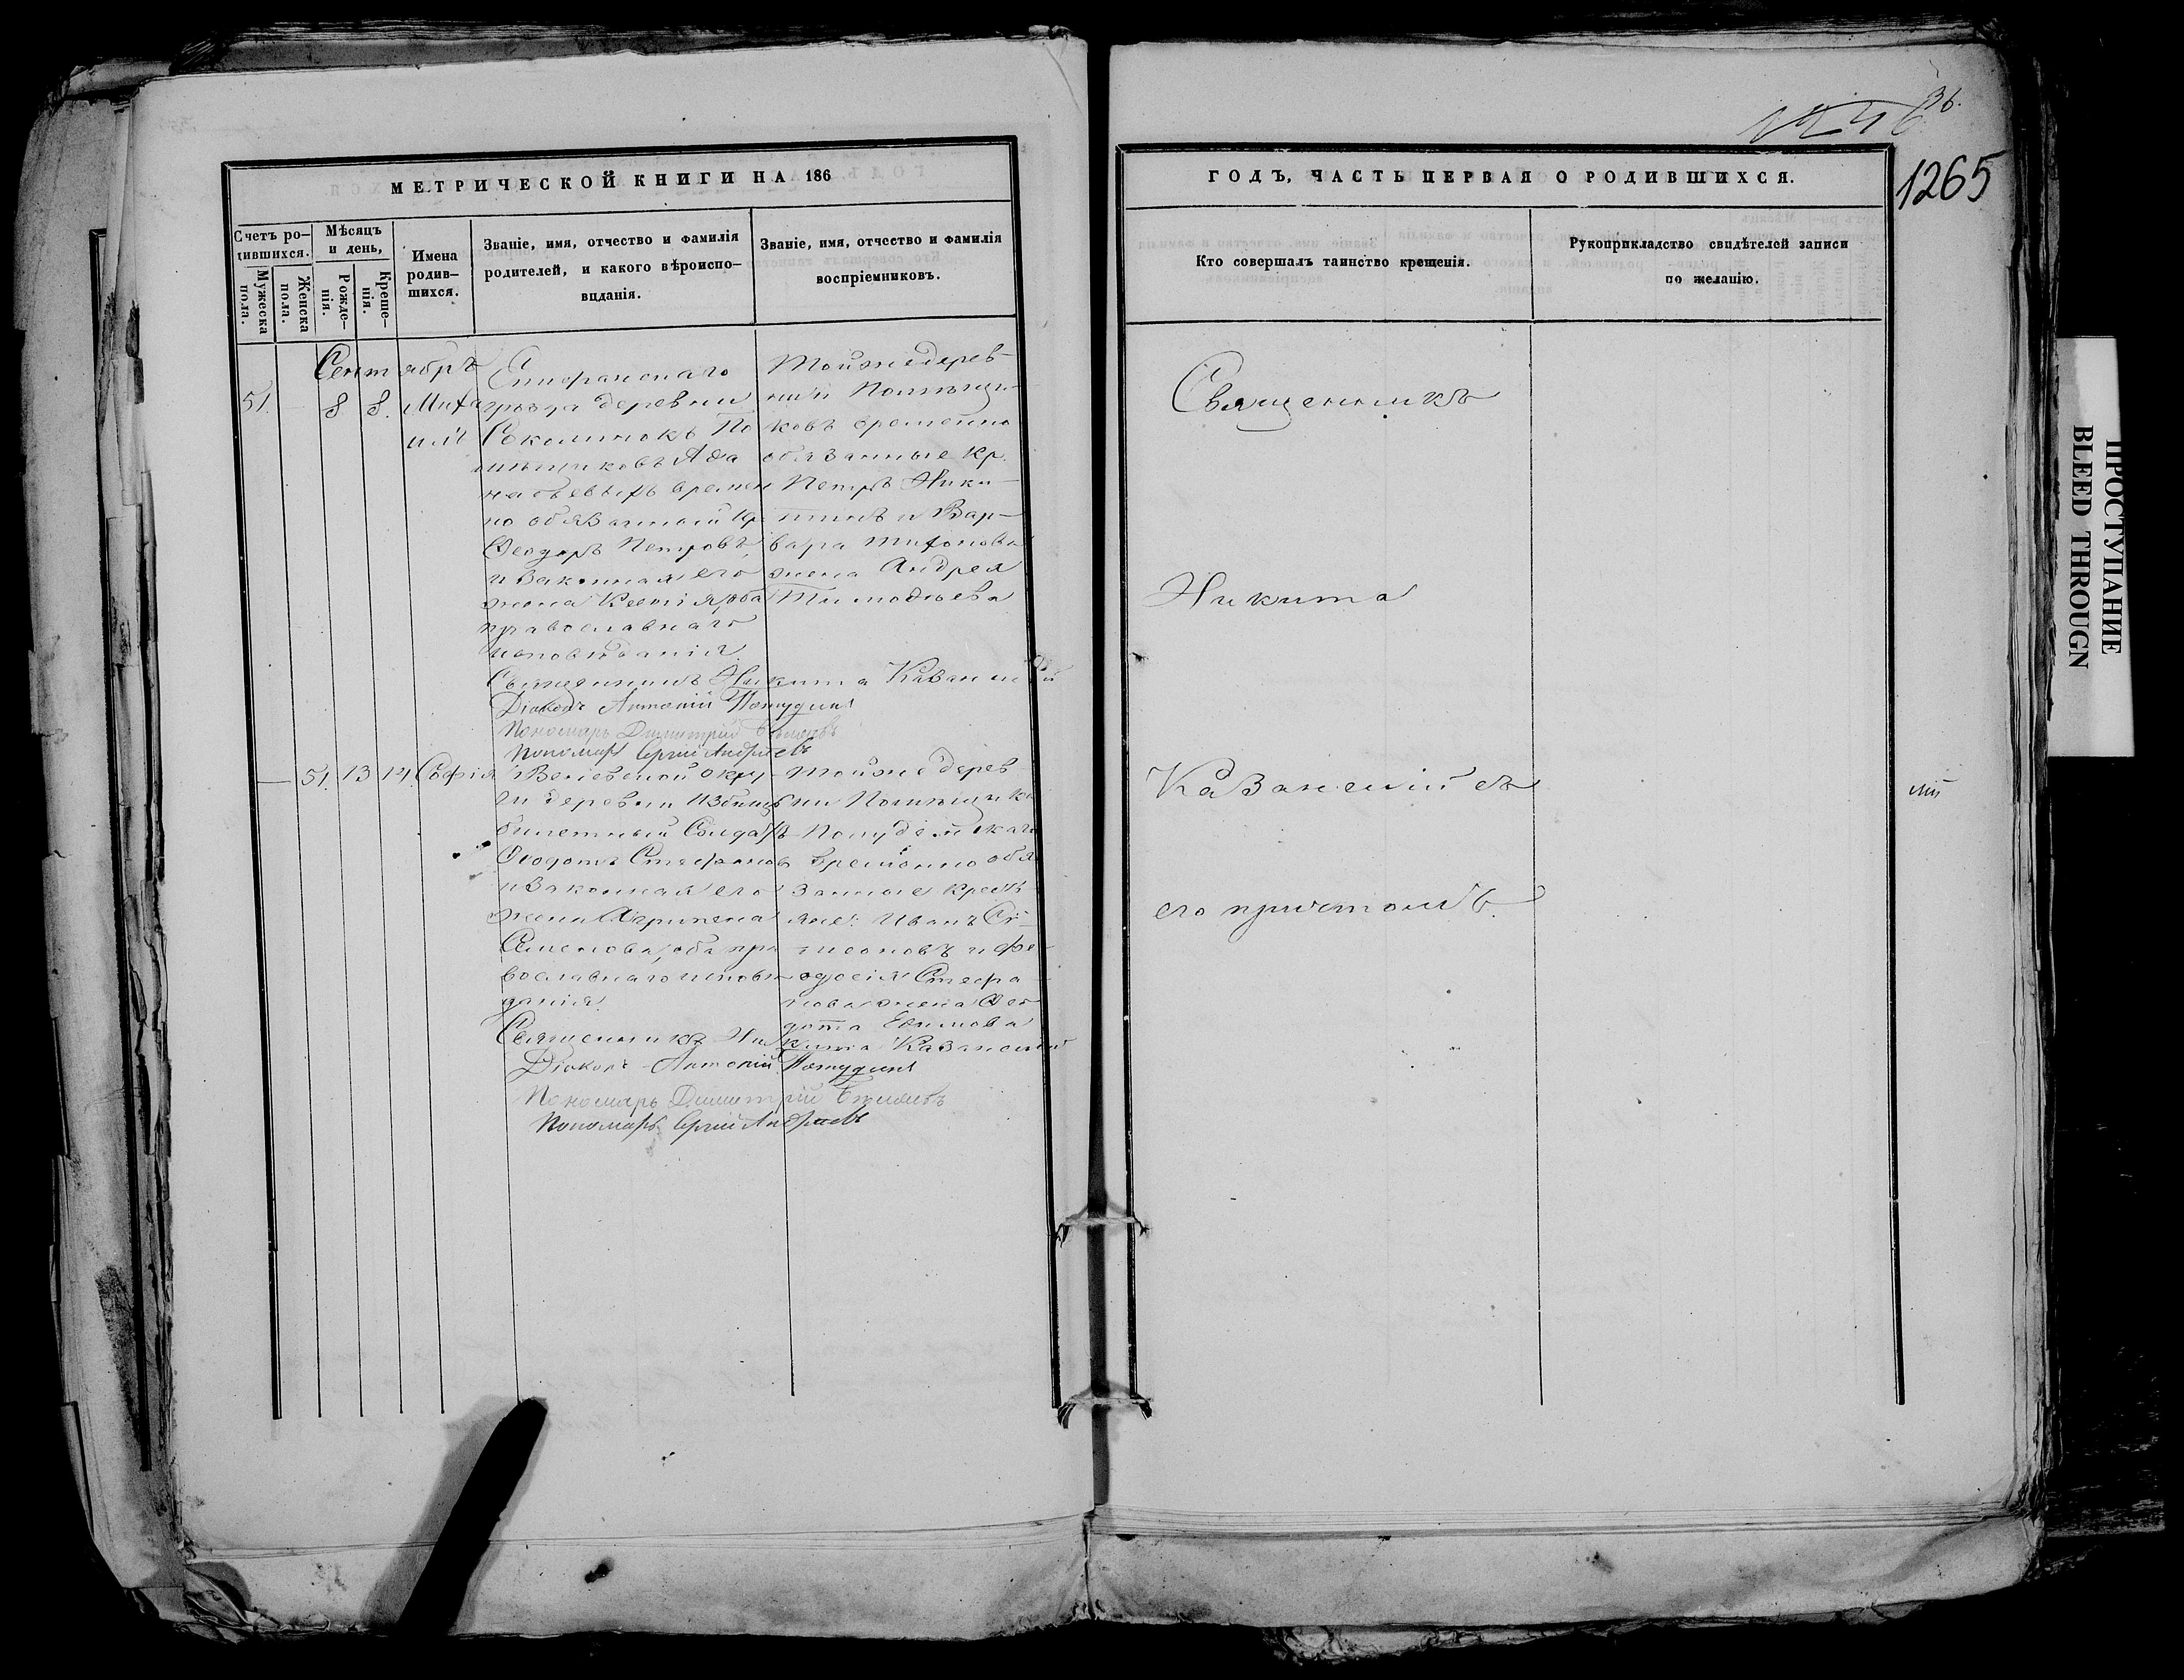 36.
1265
МЕТРИЧЕСКОЙ КНИГИ НА 186
Счетъ ро-
дившихся.
Мужеска
пола.
Женска
пола.
Мѣсяцъ
и день,
Рожде-
нія.
Креще-
нія.
Имена
родив-
шихся.
Званіе, имя, отчество и фамилія
родителей, и какого вѣроиспо-
вѣданія.
Званіе, имя, отчество и фамилія
воспріемниковъ.
Сентябрь
51.
8
8.
Миха
илъ
Епифанскаго
уѣзда деревни
Соколинокъ По
мѣщиковъ
времен
но обязанный кр.
Ѳеодоръ Петровъ
и законная его
жена оба
православнаго
исповѣданія.
Тойже дерев-
ни Помѣщи-
ковъ временно
обязанные кр.
Петръ Ники-
тинъ и Вар-
вара Тихонова
жена Андрея
Тимофеева
Священникъ Никита Казанскій
Діаконъ Антоній
Пономарь Димитрій
Пономарь Сергій Андреевъ
51.
13
14.
Софія
округ-
ги деревни
билетный Солдатъ
Ѳеодотъ Стефановъ
и законная его
жена Агрипена
Семенова, оба пра
вославнаго исповѣ
данія.
Тойже дерев
ни Помѣщика
временно обя
занные кресть
яне: Иванъ Си-
меоновъ и Фе-
одосія Стефа
нова жена Ѳео
дота Ефимова
Священникъ Никита Казанскій
Діаконъ Антоній
Пономарь Димитрій
Пономарь Сергій Андреевъ
ГОДЪ, ЧАСТЬ ПЕРВАЯ О РОДИВШИХСЯ.
Кто совершалъ таинство крещенія.
Рукоприкладство свидѣтелей записи
по желанію.
Священникъ
Никита
Казанскій съ
его причтомъ.
ПРОСТУПАНИЕ
BLEED THROUGN